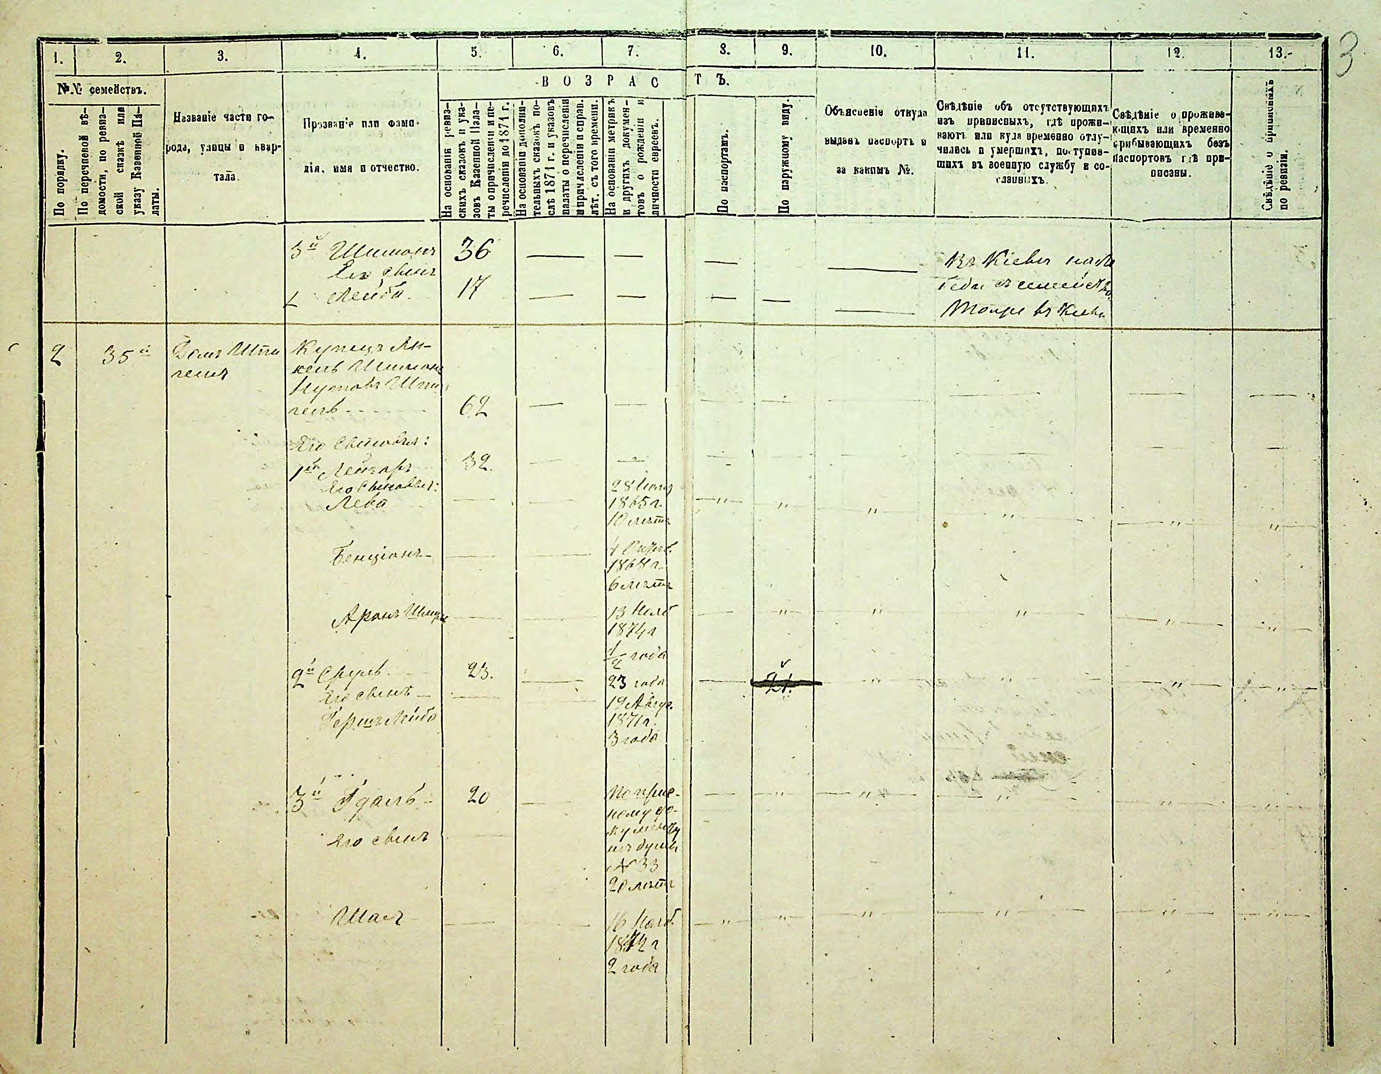 3
1.
2.
3.
4.
5.
6.
7.
8.
9.
10.
11.
12.
13.
№№ семействъ.
По порядку.
По перечневой вѣ-
домости, по ревиз-
ской сказкѣ или
указу Казенной Па-
латы.
Названіе части го-
рода, улицы и квар-
тала.
Прозваніе или фами-
лія, имя и отчество.
ВОЗРАСТЪ.
На основаніи ревиз-
скихъ сказокъ и ука-
зовъ Казенной Пала-
ты о причисленіи и пе-
речисленіи до 1874 г.
На основаніи дополни-
тельныхъ сказокъ по-
слѣ 1874 г. и указовъ
палаты о перечисленіи
и причисленіи и справ.
лѣт. съ того времени.
На основаніи метрикъ
и другихъ докумен-
товъ о рожденіи и
личности евреевъ.
По паспортамъ.
По наружному виду.
Объясненіе откуда
выданъ паспортъ и
за какимъ №.
Свѣдѣніе объ отсутствующихъ
изъ приписныхъ, гдѣ прожи-
ваютъ или куда временно отлу-
чились и умершихъ, поступив-
шихъ въ военную службу и со-
сланныхъ.
Свѣдѣніе о прожива-
ющихъ или временно
прибывающихъ безъ
паспортовъ гдѣ при-
писаны.
Свѣдѣніе о приписныхъ
по ревизіи.
3й Шимонъ 36
Его сынъ
1 Лейба. 17
Въ Кіевѣ
Тоже въ Кіевѣ
2 35й Домъ Шпи
геля
Купецъ Ян-
кель Шимон
Шпи
гель 62
Его сыновья:
1й Лейзоръ 32
Его сыновья:
Лейба
28
1865 г.
10 лѣтъ
Бенціонъ
4
1868 г.
6 лѣтъ
Аронъ Шмуль
13 Нояб
1874 г
1/2 года
2й Сруль 23. 23 года 21.
Его сынъ
Гершъ Лейба
19 Авгу.
1871 г.
3 года
3й Гдаль 20
Его сынъ
По
ному до-
кументу
изъ думы
№ 33
20 лѣтъ
Шая
16 Нояб.
1872 г
2 года